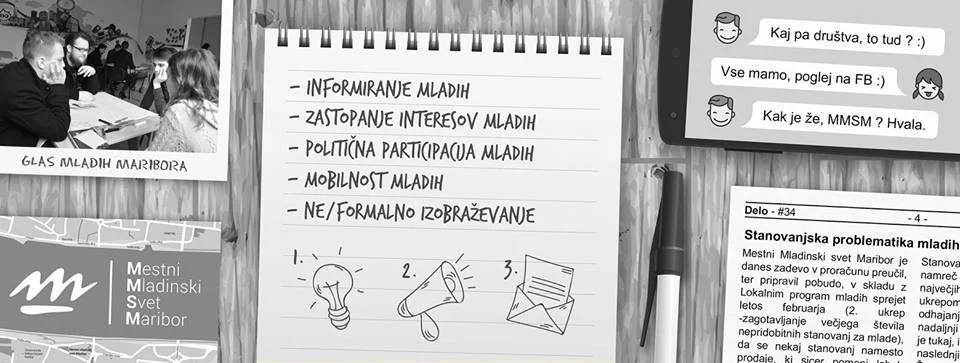 GLAS MLADIH MARIBORA
Mestni
Mladinski
Svet
Maribor
- INFORMIRANJE MLADIH
- ZASTOPANJE INTERESOV MLADIH
- POLITIČNA PARTICIPACIJA MLADIH
- MOBILNOST MLADIH
- NE/FORMALNO IZOBRAŽEVANJE
1.
2.
3.
Kaj pa društva, to tud ? :)
Vse mamo, poglej na FB :)
Kak je že, MMSM ? Hvala.
Delo - #34
- 4 -
Stanovanjska problematika mladih
Mestni Mladinski svet Maribor je
danes zadevo v proračunu preučil,
ter pripravil pobudo, v skladu z
Lokalnim program mladih sprejet
letos februarja (2. ukrep
-zagotavljanje večjega števila
nepridobitnih stanovanj za mlade),
da se nekaj stanovanj namesto
prodaje, ki sicer pomeni
Stanova
namreč
največjih
ukrepom
odhajanj
nadaljnji
je tukaj, i
naslednji